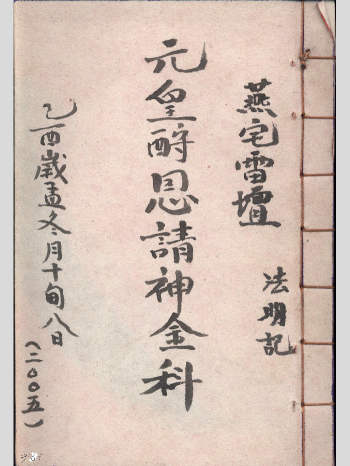 燕宅雷壇
法明記
元皇酧恩請神全科
乙酉歲孟冬月十旬八日
(二00五)